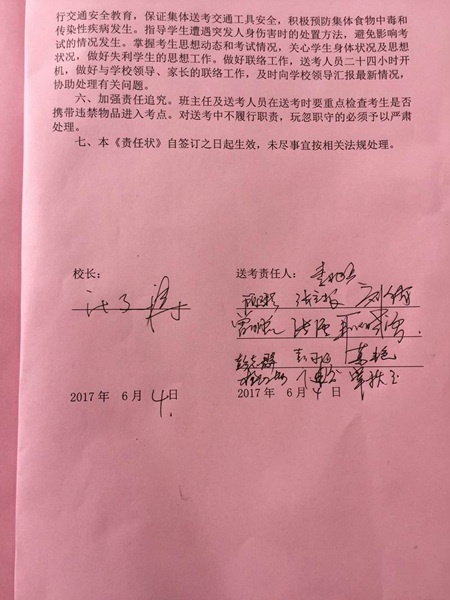 行交通安全教育，保证集体送考交通工具安全，积极预防集体食物中毒和
传染性疾病发生。指导学生遭遇突发人身伤害时的处置方法，避免影响考
试的情况发生。掌握考生思想动态和考试情况，关心学生身体状况及思想
状况，做好失利学生的思想工作。做好联络工作，送考人员二十四小时开
机，做好与学校领导、家长的联络工作，及时向学校领导汇报最新情况，
协助处理有关问题。
六、加强责任追究。班主任及送考人员在送考时要重点检查考生是否
携带违禁物品进入考点。对送考中不履行职责，玩忽职守的必须予以严肃
处理。
七、本《责任状》自签订之日起生效，未尽事宜按相关法规处理。
校长：
送考责任人：
2017 年 6 月 4 日
2017 年 6 月 4 日